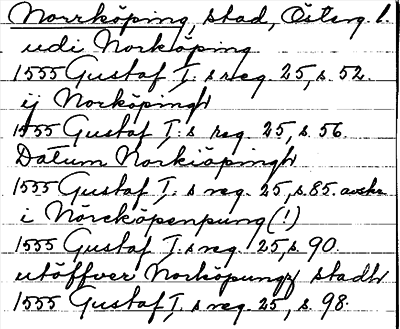 Norrköping, stad, Österg. l.
udi Norköping
1555 Gustaf I:s reg. 25, s. 52.
ij Norköpingh
1555 Gustaf I:s reg. 25, s. 56.
Datum Norkiöpingh
1555 Gustaf I:s reg. 25, s. 85. avskr
i Nörcköpenpung (!)
1555 Gustaf I:s reg. 25, s. 90.
utöffver Norköpungz stadh
1555 Gustaf I:s reg. 25, s. 98.